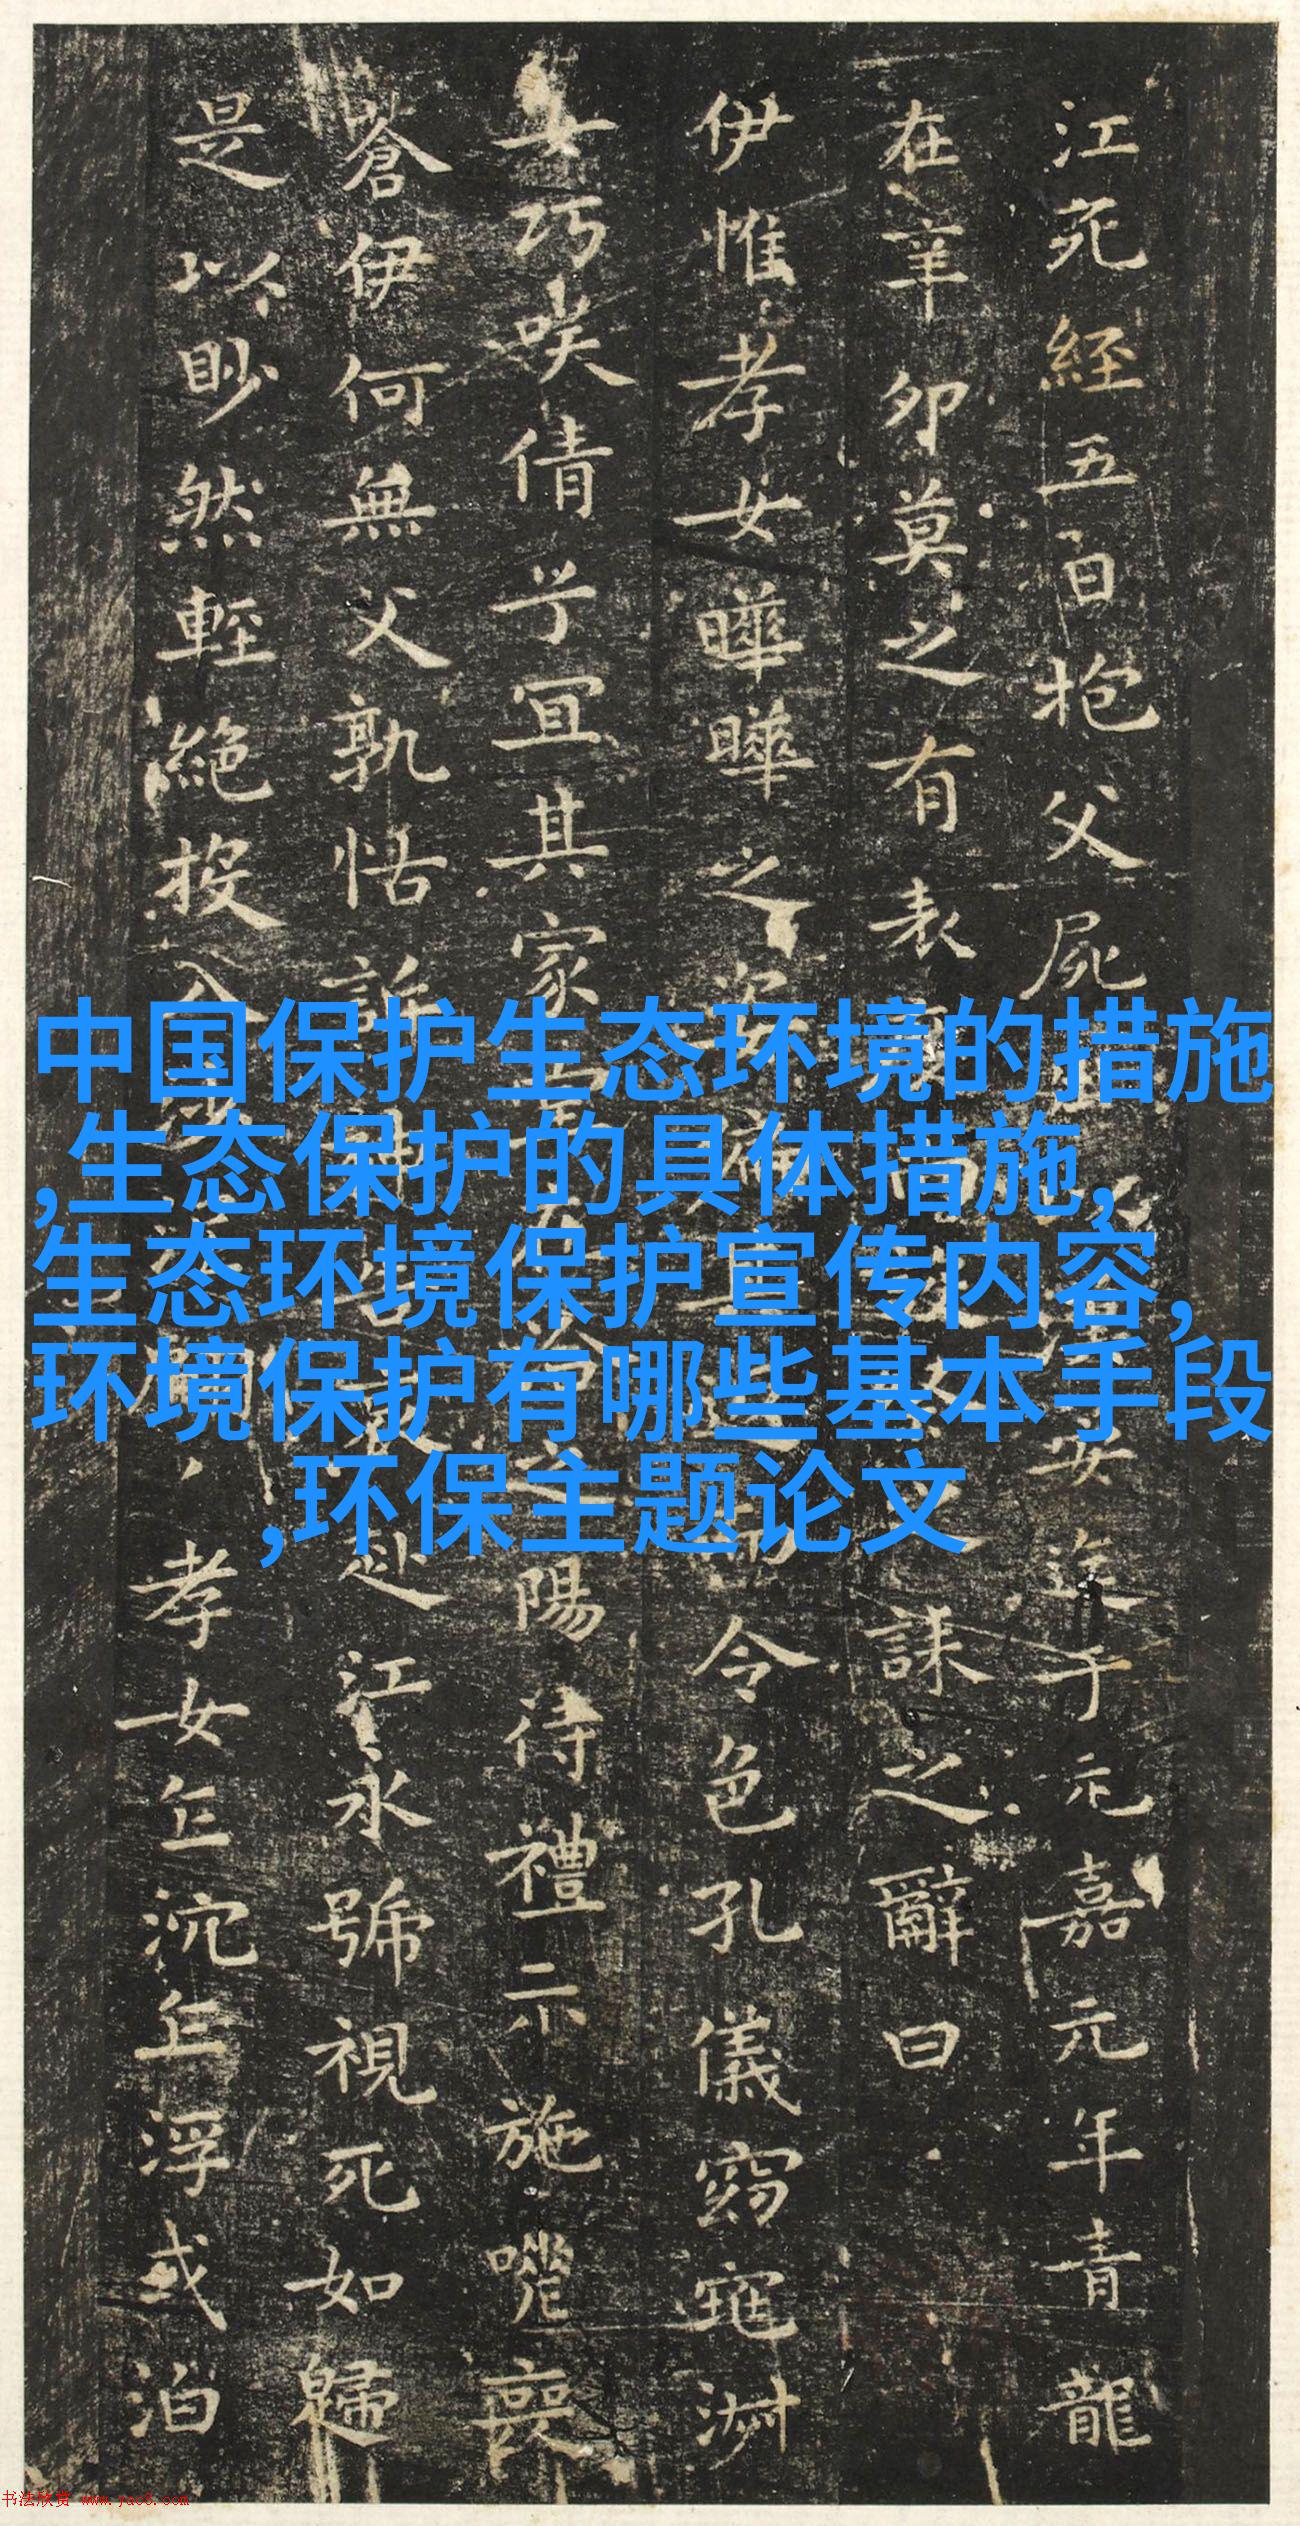 江死經五日抱父屍安迄于元嘉元年青龍
在辛卯莫之有表誄之辭曰
伊惟孝女曄曄之姿偏其令色孔儀窈窕淑
女巧咲倩兮宜其家之陽待禮未施嗟喪
蒼伊何無父孰怙訴赴江永號視死如歸
是以眇然輕絕投入孝女乍沉乍浮或泊
中国保护生态环境的措施
,生态保护的具体措施,
生态环境保护宣传内容,
环境保护有哪些基本手段
,环保主题论文
书法欣赏 www.yac8.com